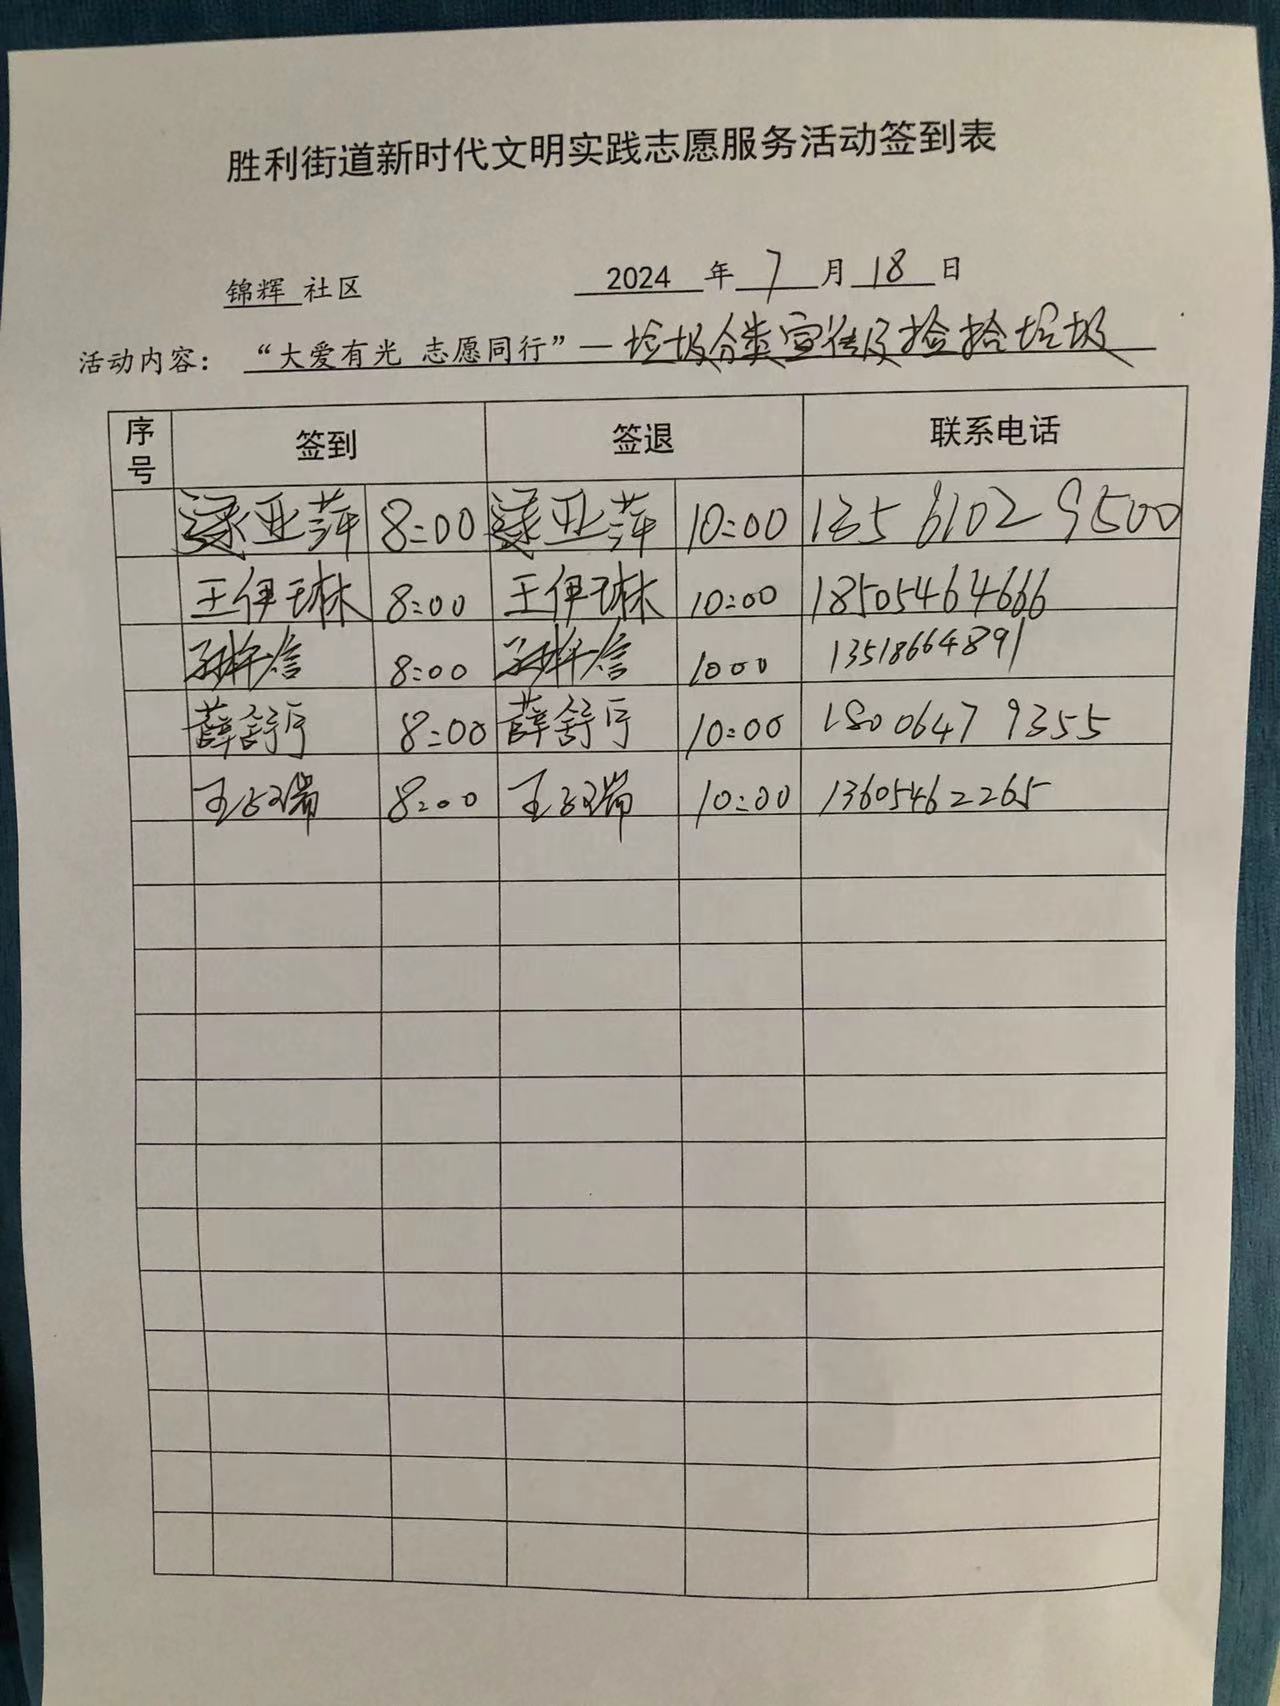 胜利街道新时代文明实践志愿服务活动签到表
锦辉 社区 2024 年 7 月 18 日
活动内容： “大爱有光 志愿同行”— 垃圾分类宣传及捡拾垃圾
序号 签到 签退 联系电话
梁亚萍 8:00 梁亚萍 10:00 13561029500
王伊琳 8:00 王伊琳 10:00 18505464666
8:00 1000 13518664891
薛舒宁 8:00 薛舒宁 10:00 18006479355
8:00 10:00 13605462265